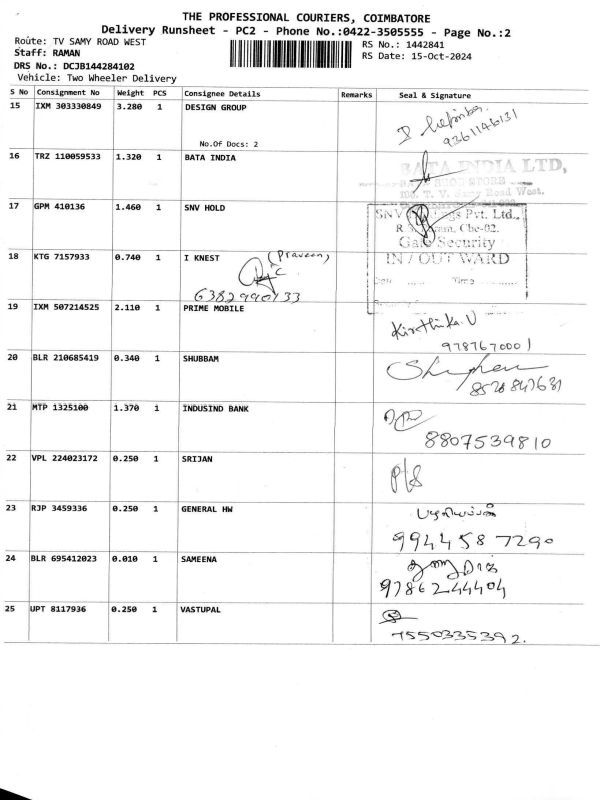 THE PROFESSIONAL COURIERS, COIMBATORE
Delivery Runsheet - PC2 - Phone No.:0422-3505555 - Page No.:2
Route: TV SAMY ROAD WEST
RS No.: 1442841
Staff: RAMAN
RS Date: 15-Oct-2024
DRS No.: DCJB144284102
Vehicle: Two Wheeler Delivery
S No Consignment No Weight PCS Consignee Details Remarks Seal & Signature
15 IXM 303330849 3.280 1 DESIGN GROUP
No.Of Docs: 2
9361146131
16 TRZ 110059533 1.320 1 BATA INDIA
BATA INDIA LTD,
T. V. Samy Road West.
17 GPM 410136 1.460 1 SNV HOLD
SNV Pvt. Ltd.,
Cbe-02.
Gate Security
IN / OUT WARD
Time
18 KTG 7157933 0.740 1 I KNEST (Praveen)
6382990133
19 IXM 507214525 2.110 1 PRIME MOBILE
Kirthika.U
9787670001
20 BLR 210685419 0.340 1 SHUBBAM
8526847631
21 MTP 1325100 1.370 1 INDUSIND BANK
8807539810
22 VPL 224023172 0.250 1 SRIJAN
P/S
23 RJP 3459336 0.250 1 GENERAL HW
9944587290
24 BLR 695412023 0.010 1 SAMEENA
9786244404
25 UPT 8117936 0.250 1 VASTUPAL
7550335392.